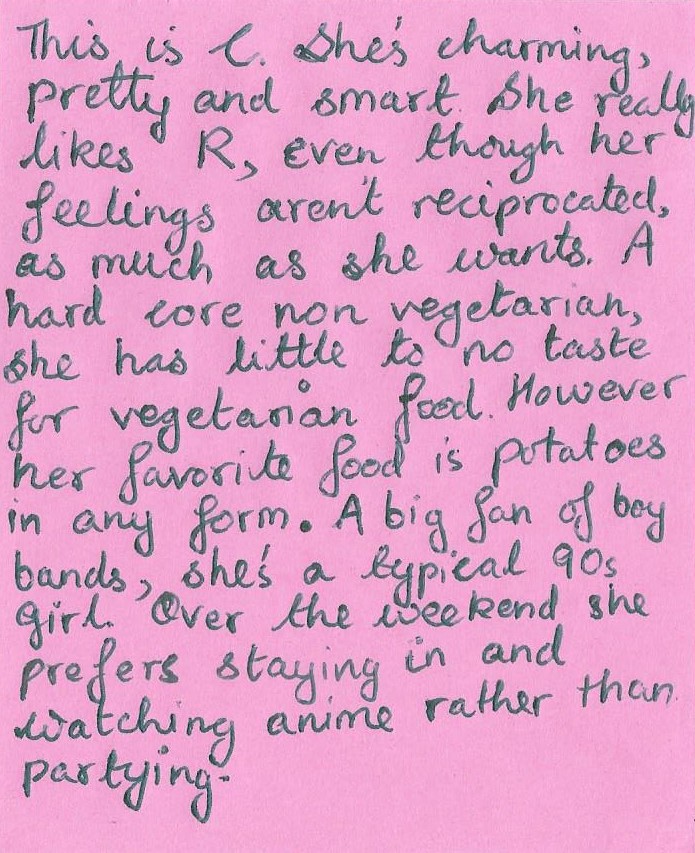 This is C. She's charming,
pretty and smart. She really
likes R, even though her
feelings aren't reciprocated,
as much as she wants. A
hard core non vegetarian,
she has little to no taste
for vegetarian food. However
her favorite food is potatoes
in any form. A big fan of boy
bands, she's a typical 90s
girl. Over the weekend she
prefers staying in and
watching anime rather than
partying.